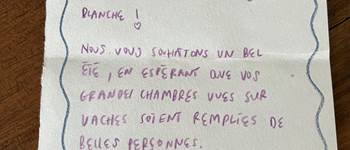 BLANCHE !
NOUS VOUS SOUHAITONS UN BEL
ÉTÉ, EN ESPÉRANT QUE VOS
GRANDES CHAMBRES VUES SUR
VACHES SOIENT REMPLIES DE
BELLES PERSONNES.